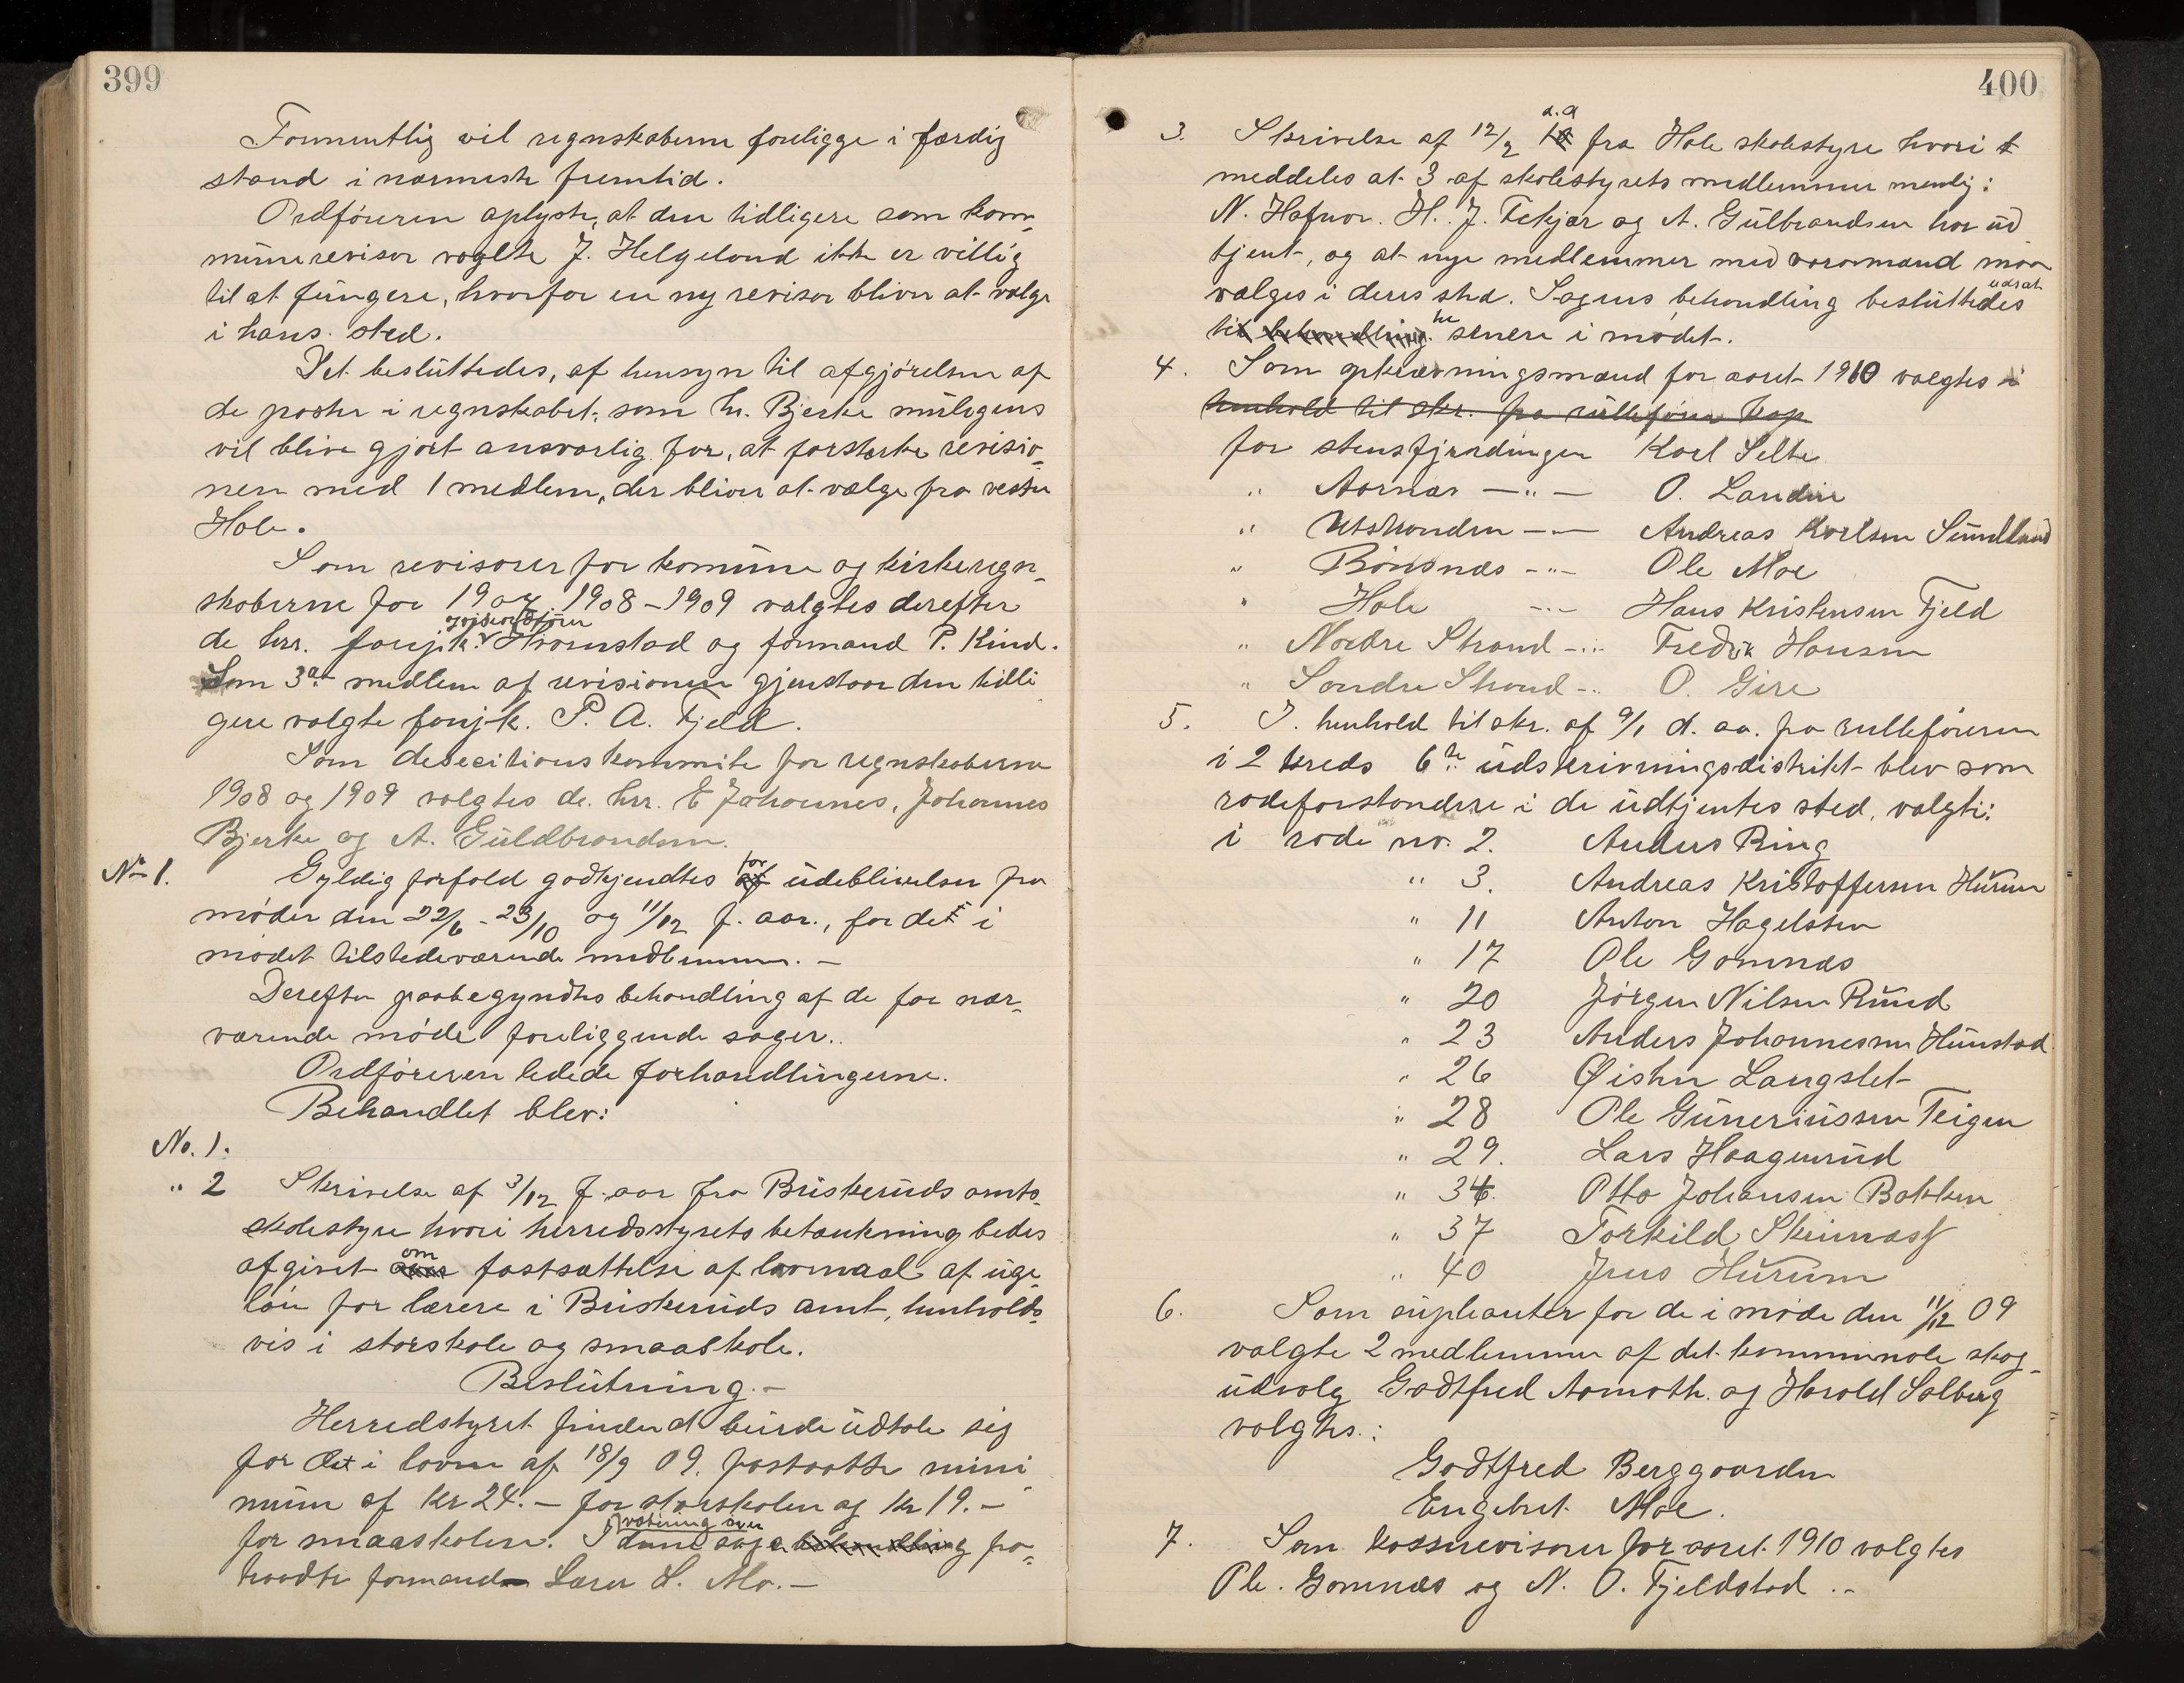 399
Formentlig vil regnskaberne foreligge i færdig
stand i nærmeste fremtid.
Ordføreren oplyste, at den tidligere som kom-
munerevisor valgte J. Helgeland ikke er villig
til at fungere, hvorfor en ny revisor bliver at vælge
i hans sted.
Det besluttedes, af hensyn til afgjørelsen af
de poster i regnskabet, som hr. Bjerke muligens
vil blive gjort ansvarlig for, at forsterke revisio-
nen med 1 medlem, der bliver at vælge fra vestre
Hole.
Som revisorer for komune og kirkeregn-
skaberne for 1907 1908-1909 valgtes derefter
de hrr. fanjk. Hvornstad og formand P. Rind.
Som 3die medlem af revisionen gjenstaar den tidli
gere valgte fanjk. P. A. Fjeld.
Som desecitionskommite for regnskaberne
1908 og 1909 valgtes de hrr. E Johannes, Johannes
Bjerke og A. Guldbrandsen.
No 1. Gyldig forfald godkjendtes for udeblivelsen fra
møder den 22/6 - 23/10 og 11/12 f. aar., for de i
mødet tilstedeværende medlemmer. —
Derefter paabegyndtes behandling af de for nær-
værende møde foreliggende sager.
Ordføreren ledede forhandlingerne.
Behandlet blev:
No. 1.
" 2 Skrivelse af 3/12 f. aar fra Buskeruds amts-
skolestyre hvori herredsstyrets betænkning bedes
afgivet om fastsættelse af lavmaal af uge-
løn for lærere i Buskeruds amt, henholds-
vis i storskole og smaaskole.
Beslutning.—
Herredstyret finder at burde udtale sig
for det i loven af 18/9 09. fastsatte mini
mum af Kr 24.— for storskolen og Kr 19.—
for smaaskolen. I denne sag fra-
traadte formand Lærer L. Mo.—
400
3. Skrivelse af 12/2 d. a fra Hole skolestyre hvori
meddeles at 3 af skolestyrets medlemmer nemlig:
N. Hafnor. H. J. Fekjær og A. Gulbrandsen har ud
tjent, og at nye medlemmer med varamænd maa
vælges i deres sted. Sagens behandling besluttedes udsat
til behandling senere i mødet.
4. Som opkrævningsmænd for aaret 1910 valgtes i
henhold til skr. fra rullefører
for stensfjerdingen Karl Selte
" Aarnæs —"— O. Landin
" Utstranden —"— Andreas Karlsen Sundland
" Bønsnæs —"— Ole Moe
" Hole —"— Hans Kristensen Fjeld
" Nordre Strand —"— Fredrik Hansen
" Søndre Strand —"— O. Gire
5. I. henhold til skr. af 9/1 d. aa. fra rulleføreren
i 2 kreds 6te udskrivningsdistrikt blev som
rodeforstandere i de udtjentes sted, valgt:
i rode no. 2. Anders Ring
" 3. Andreas Kristoffersen Hurum
" 11 Anton Hagelsten
" 17 Ole Gomnæs
" 20 Jørgen Nilsen Ruud
" 23 Anders Johannesen Hunstad
" 26 Øisten Langslet
" 28 Ole Guneriussen Teigen
" 29. Lars Haagenrud
" 34. Otto Johansen Bakken
" 37 Torkild Steinæss
" 40 Jens Hurum
6. Som supleanter for de i møde den 11/12 09
valgte 2 medlemmer af det kommunale skog-
udvalg Godtfred Aamoth. og Harald Solberg
valgtes.:
Godtfred Berggaarden
Engebret Moe.
7. Som kasserevisorer for aaret 1910 valgtes
Ole. Gomnæs og N. O. Fjeldstad.—